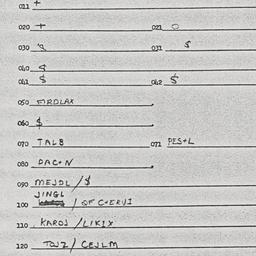 011 +
020 + 021 O
030 021 $
040 $
041 $ 042 $
050
060 $
070 TALB 071 PES+L
080 DAC+N
090 MEJDL / $
JINGL
100 / QF C+ERVI
110 KAROJ / LIKIX
120 TOJZ / CEJLM